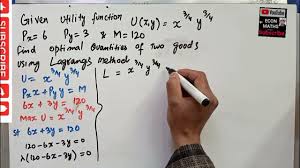 Given Utility function U(x,y) = x^3/4 y^3/4
Px = 6 Py = 3 & M = 120
Find optimal Quantities of Two goods
Using Lagrang's method
U = x^3/4 y^3/4
Px x + Py y = M
6x + 3y = 120
Max U = x^3/4 y^3/4
St 6x + 3y = 120
120 - 6x - 3y = 0
λ(120 - 6x - 3y) = 0
L = x^3/4 y^3/4 +
ECON
MATHS